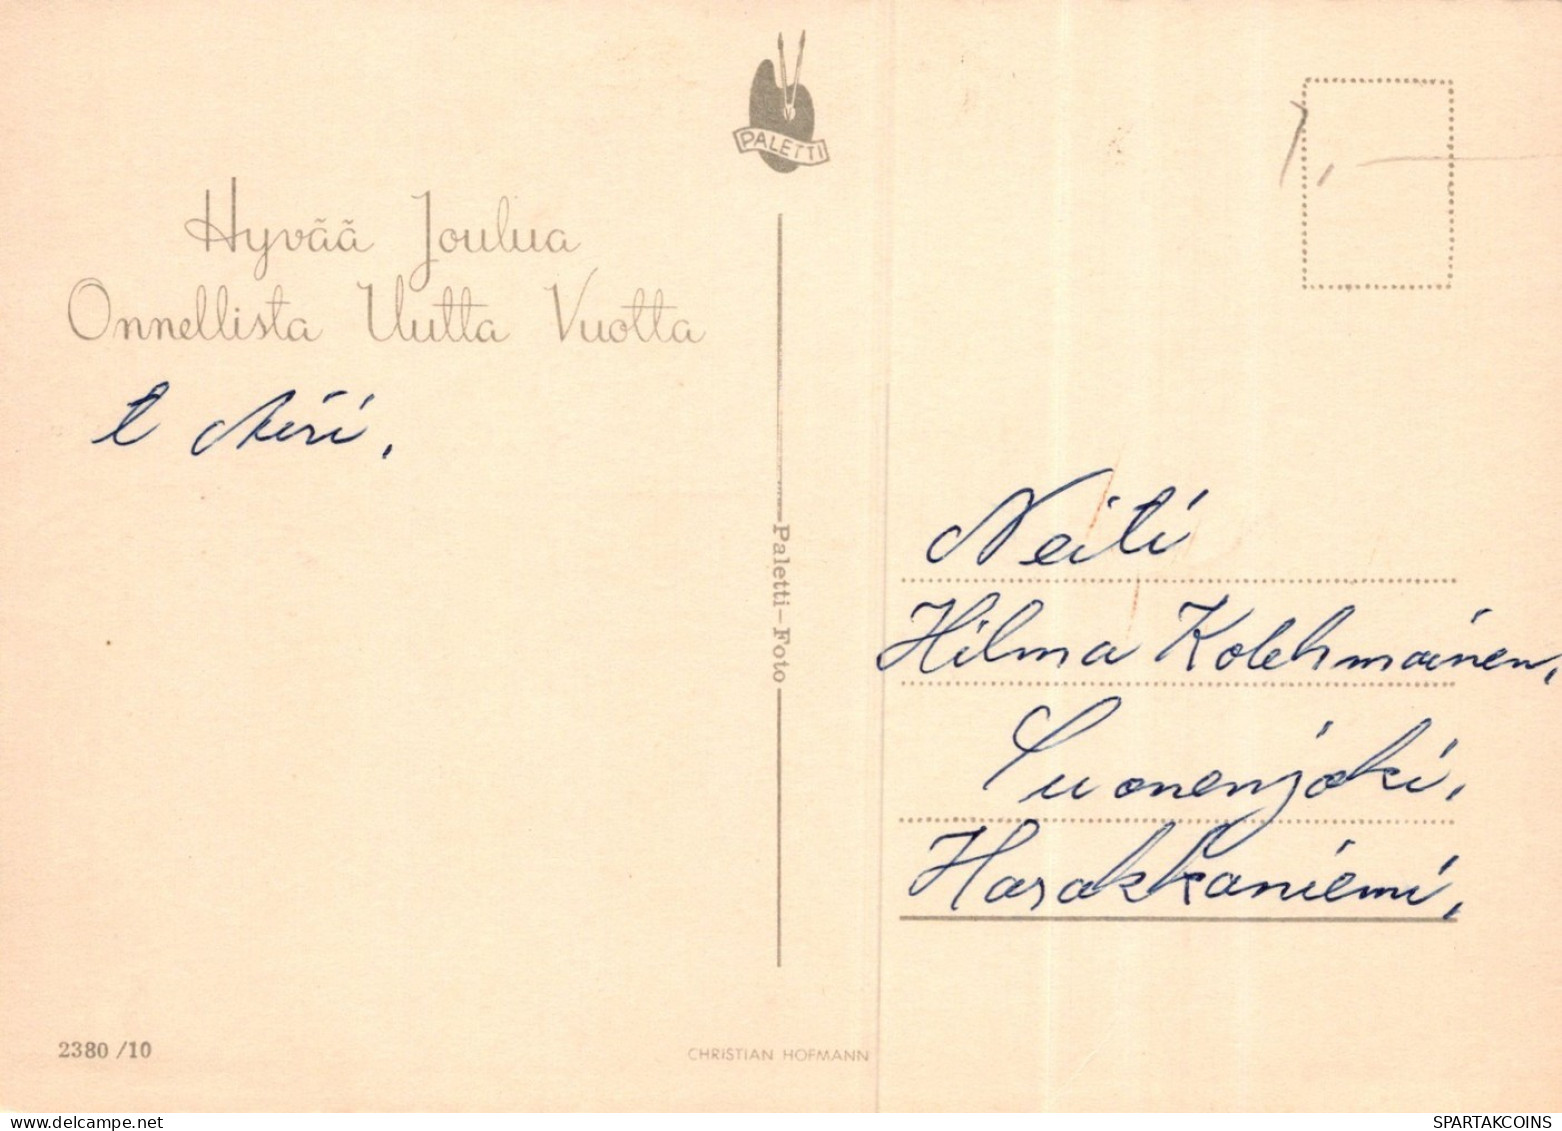 PALETTI
Hyvää Joulua
Onnellista Uutta Vuotta
t
Paletti-Foto
Neiti
Hilma Kolehmainen,
Suonenjoki,
Harakkaniemi,
2380 /10
CHRISTIAN HOFMANN
delcampe.net
SPARTAKCOINS